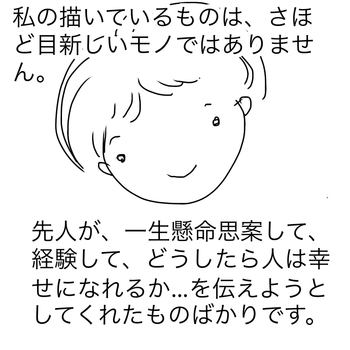 私の描いているものは、さほ
ど目新しいモノではありませ
ん。
先人が、一生懸命思案して、
経験して、どうしたら人は幸
せになれるか...を伝えようと
してくれたものばかりです。